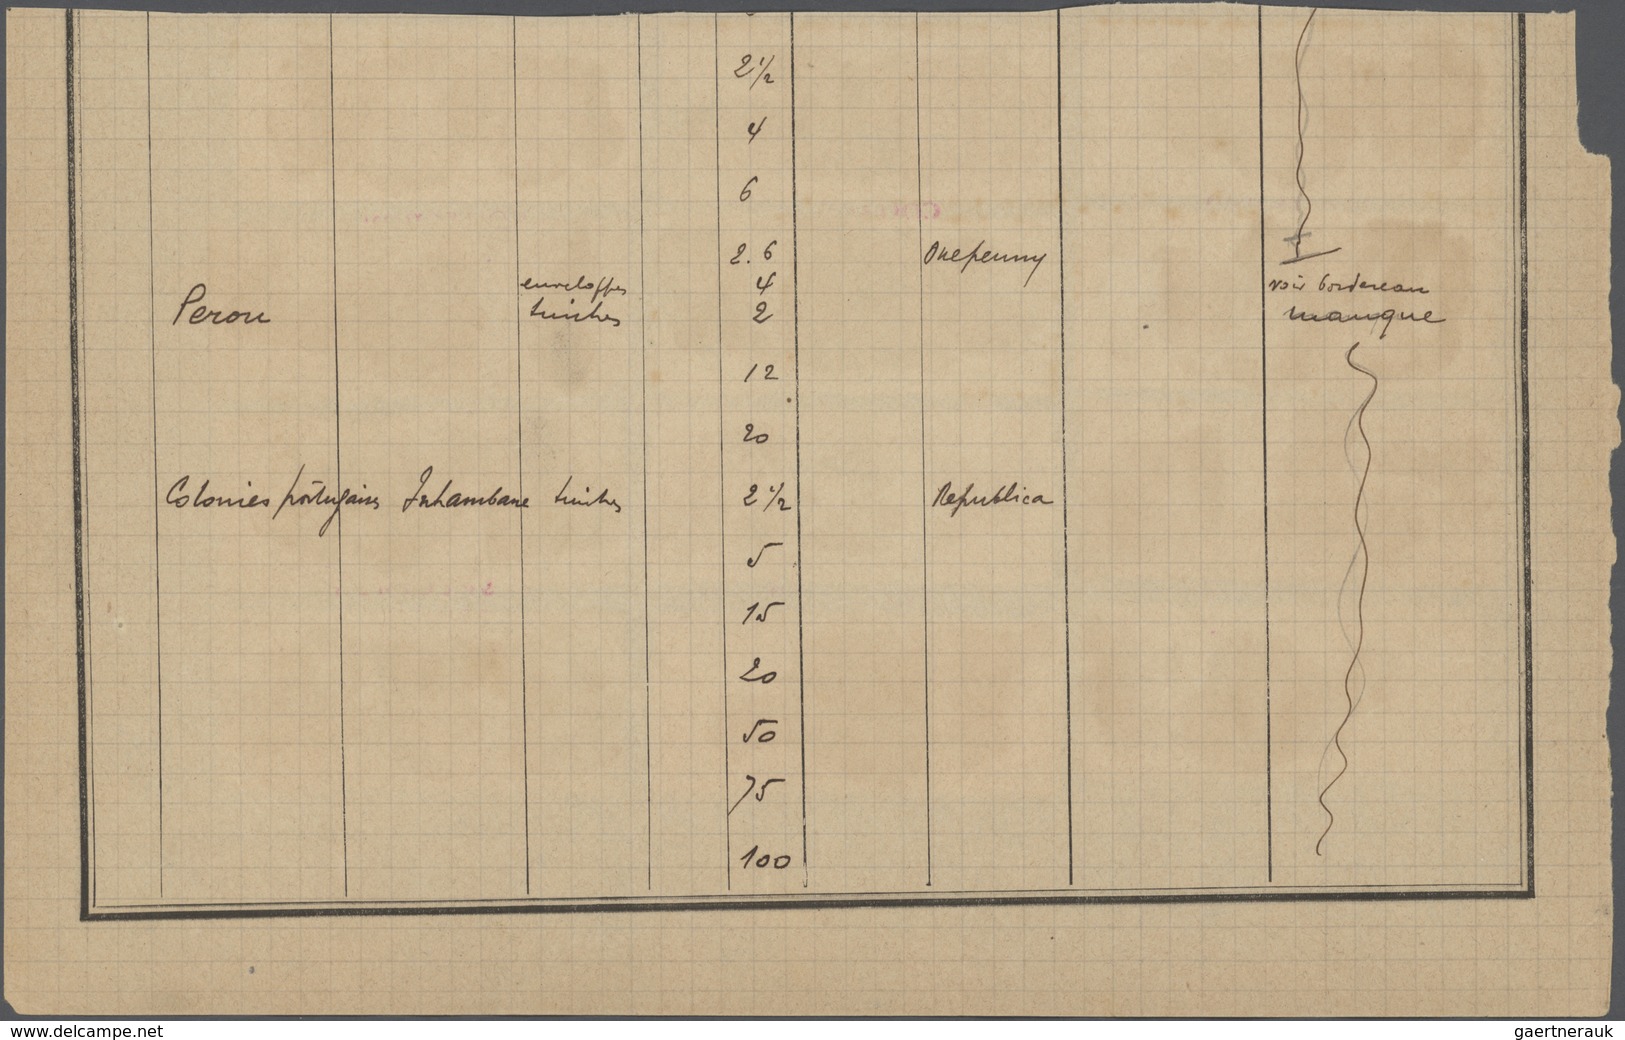 2 1/2
4
6
2.6 Onepenny
enveloppes 4 voir bordereau
Perou timbres 2 manque
12
20
Colonies portugaises Inhambane timbres 2 1/2 Republica
5
15
20
50
75
100
www.delcampe.net
gaertnerauk